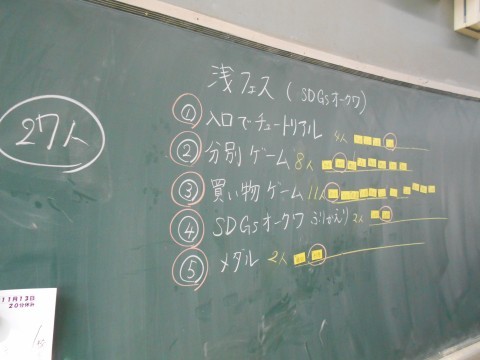 浅フェス (SDGsオークワ)
27人
① 入口でチュートリアル 4人
② 分別ゲーム 8人
③ 買い物ゲーム 11人
④ SDGsオークワ ふりかえり 2人
⑤ メダル 2人
11月13日
20分休み